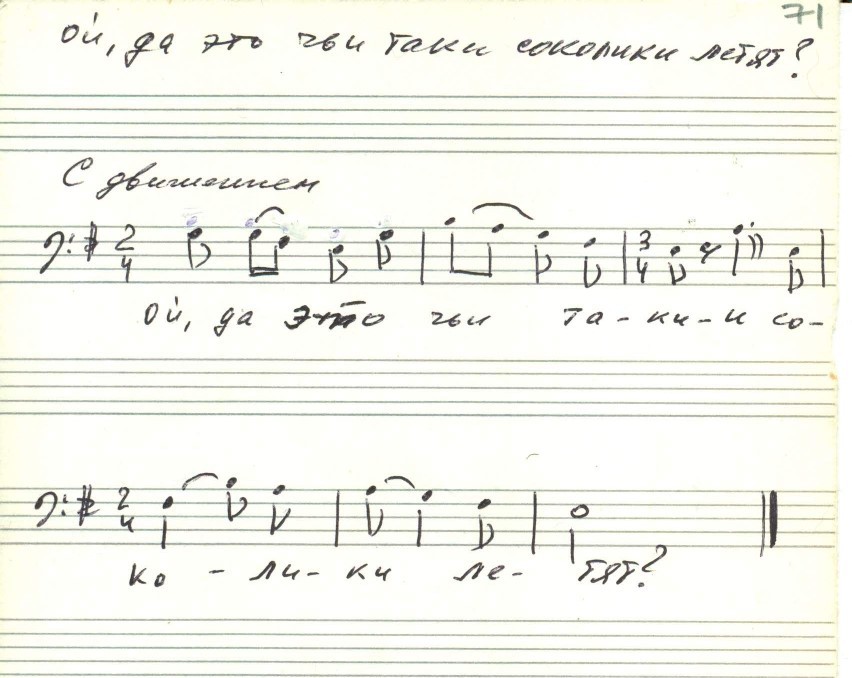 71
Ой, да это чьи таки соколики летят?
С движением
2 4 3 4
Ой, да это чьи та-ки-и со-
2 4
ко - ли- ки ле- тят?